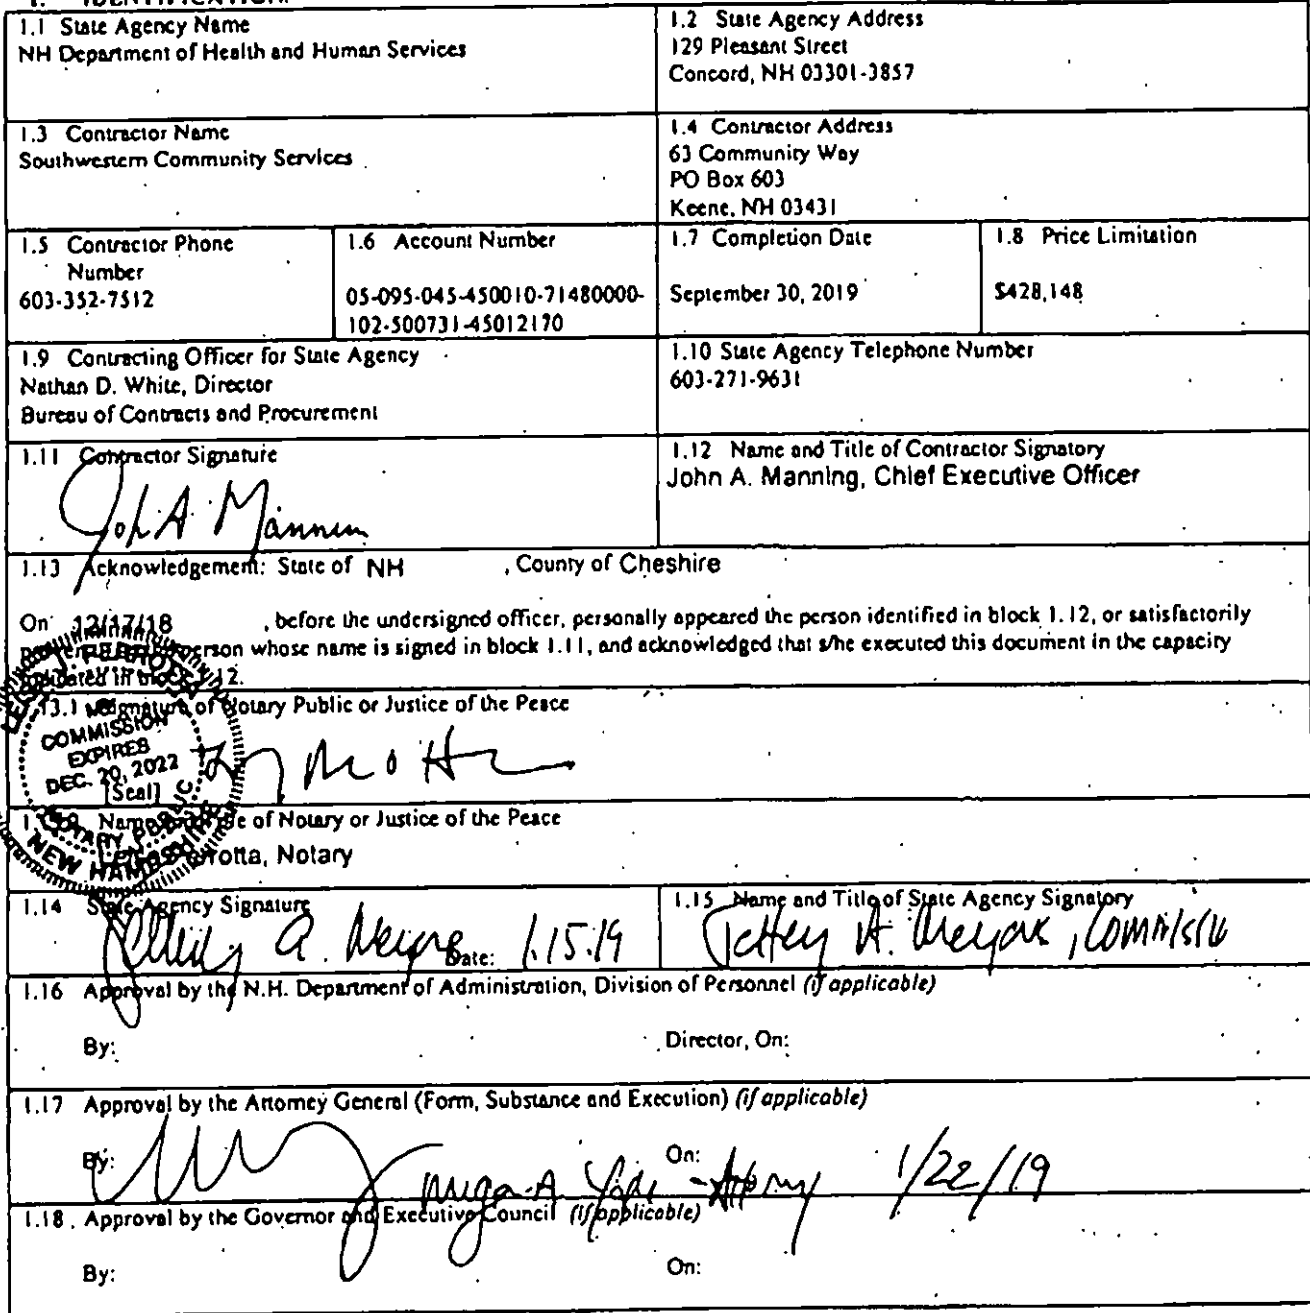 1. IDENTIFICATION.
1.1 State Agency Name
NH Department of Health and Human Services
1.2 State Agency Address
129 Pleasant Street
Concord, NH 03301-3857
1.3 Contractor Name
Southwestern Community Services
1.4 Contractor Address
63 Community Way
PO Box 603
Keene, NH 03431
1.5 Contractor Phone
Number
603-352-7512
1.6 Account Number
05-095-045-450010-71480000-
102-500731-45012170
1.7 Completion Date
September 30, 2019
1.8 Price Limitation
$428,148
1.9 Contracting Officer for State Agency
Nathan D. White, Director
Bureau of Contracts and Procurement
1.10 State Agency Telephone Number
603-271-9631
1.11 Contractor Signature
John A Manning
1.12 Name and Title of Contractor Signatory
John A. Manning, Chief Executive Officer
1.13 Acknowledgement: State of NH , County of Cheshire
On 12/17/18 , before the undersigned officer, personally appeared the person identified in block 1.12, or satisfactorily
person whose name is signed in block 1.11, and acknowledged that s/he executed this document in the capacity
indicated in block 1.12.
1.13.1 Signature of Notary Public or Justice of the Peace
COMMISSION
EXPIRES
DEC. 20, 2022
[Seal]
NOTARY PUBLIC
NEW HAMPSHIRE
Name of Notary or Justice of the Peace
Notary
1.14 State Agency Signature
Date: 1.15.19
1.15 Name and Title of State Agency Signatory
Jeffrey A. Meyers, Commissi
1.16 Approval by the N.H. Department of Administration, Division of Personnel (if applicable)
By:
Director, On:
1.17 Approval by the Attorney General (Form, Substance and Execution) (if applicable)
By:
On:
- Attorney 1/22/19
1.18. Approval by the Governor and Executive Council (if applicable)
By:
On: